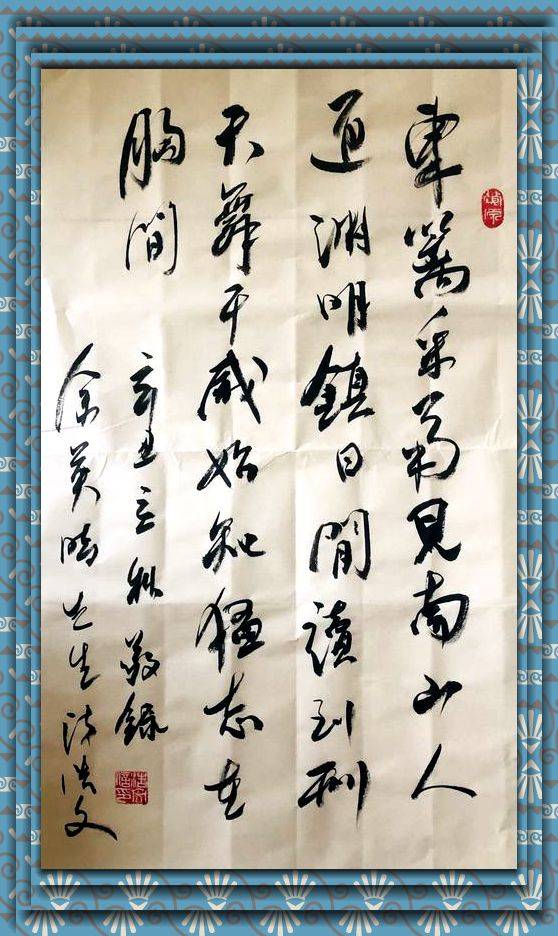 東籬采菊見南山人
道淵明鎮日閒讀到刑
天舞干戚始知猛志在
胸間
辛丑立秋敬錄
余英時先生詩 文